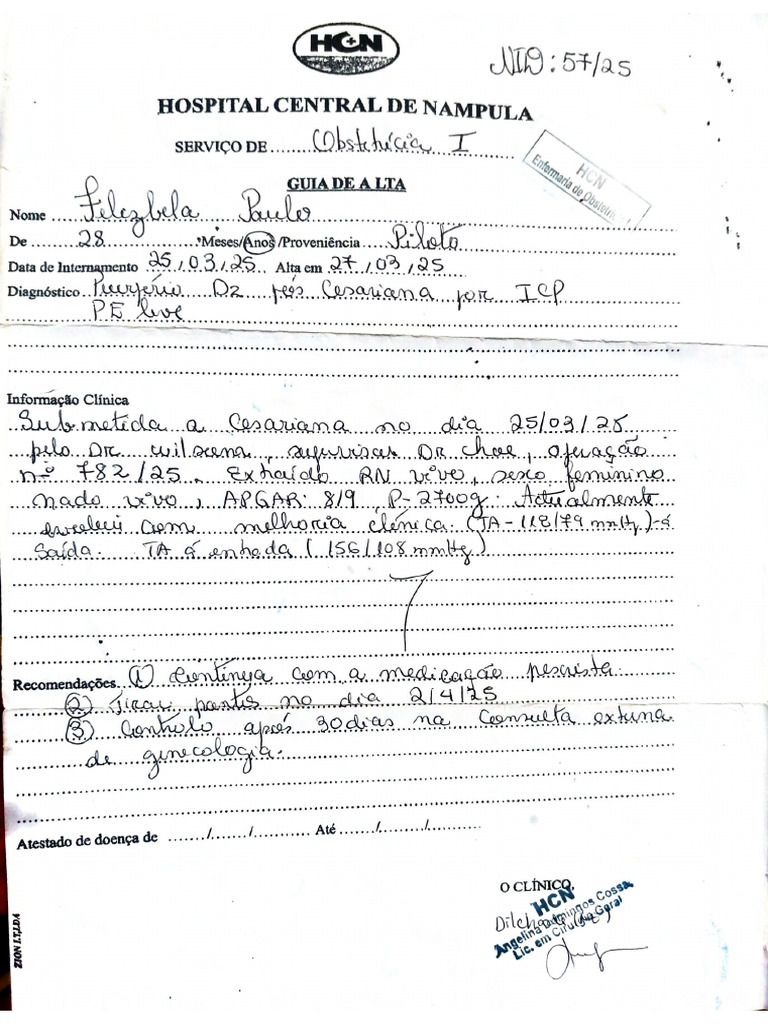 HCN
NID: 57/25
HOSPITAL CENTRAL DE NAMPULA
SERVIÇO DE Obstetrícia I
HCN
Enfermaria de Obstetrícia I
GUIA DE ALTA
Nome Felezbela Paulo
De 28 Meses/Anos/Proveniência Piloto
Data de Internamento 25/03/25 Alta em 27/03/25
Diagnóstico Puerpério D2 pós Cesariana por ICP
PE leve
Informação Clínica
Submetida a Cesariana no dia 25/03/25
pelo Dr. supervisar Dr. operação
nº 782/25. Extraído RN vivo, sexo feminino
nado vivo, APGAR: 8/9, P-2700g. Actualmente
com melhoria clínica. (TA-118/79 mmHg)-á
Saída. TA á entrada (156/108 mmHg)
Recomendações ① Continua com a medicação
② Tirar pontos no dia 2/4/25
③ Controlo após 30 dias na Consulta externa
de ginecologia.
Atestado de doença de ....../....../............ Até ....../....../............
O CLÍNICO,
HCN
Angelina Domingos Cossa
Lic. em Cirurgia Geral
ZION I.T,LDA